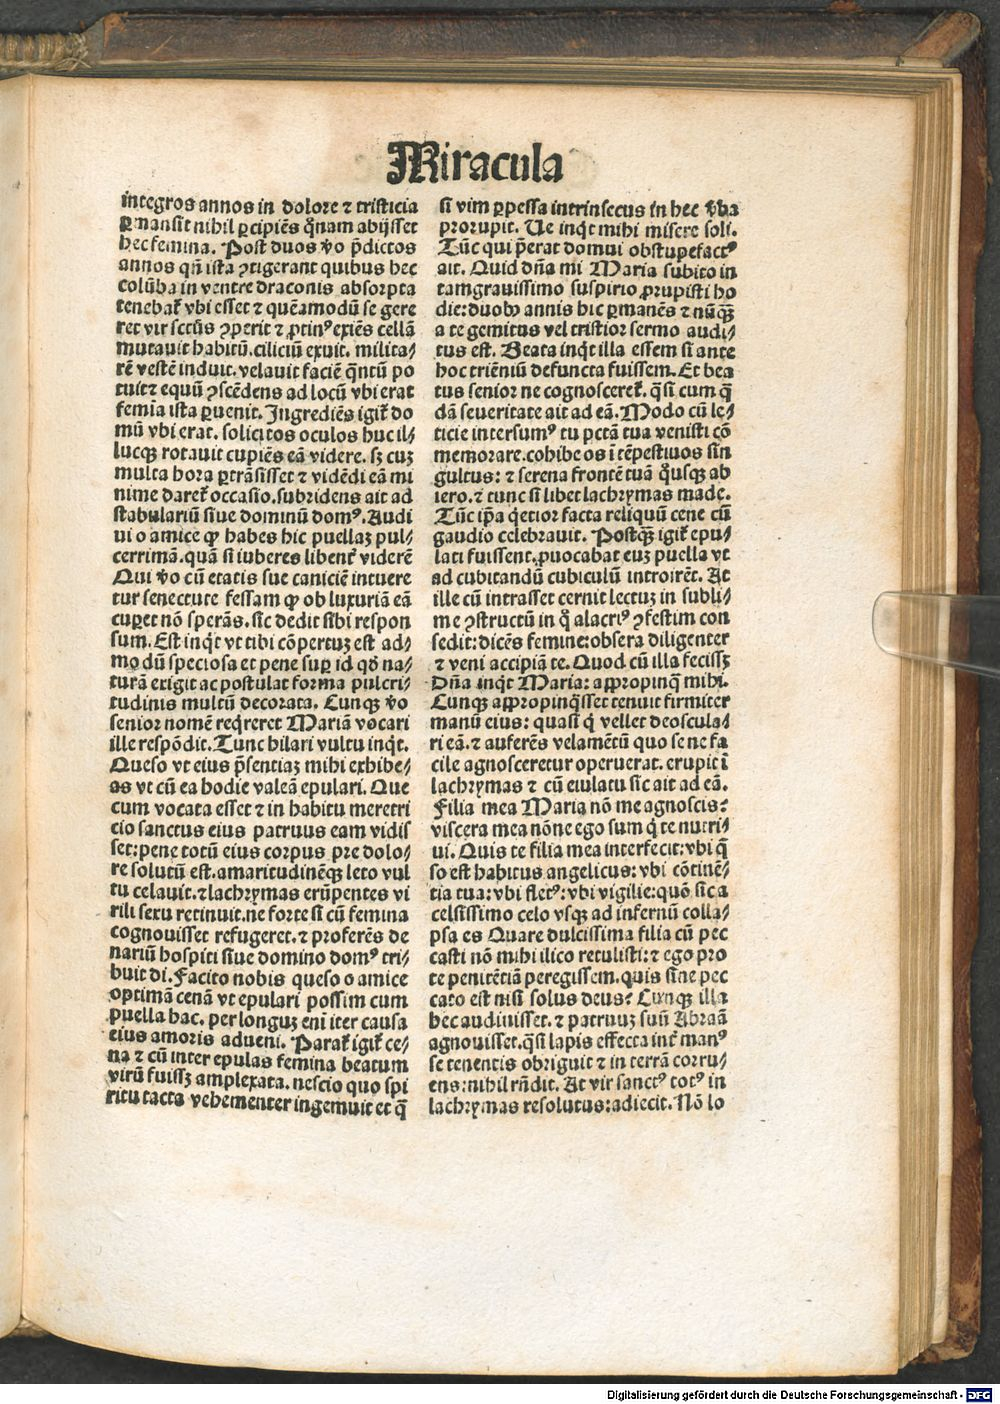 Miracula
integros annos in dolore ⁊ tristicia
ꝑmansit nihil ꝑcipiẽs qͦnam abijsset
hec femina. Post duos ꝟo p̃dictos
annos qñ ista ꝯtigerant quibus hec
colũba in ventre draconis absorpta
tenebat̃ vbi esset ⁊ quẽamodũ se gere
ret vir sctũs ꝯperit ⁊ ꝓtinꝰ exiẽs cellã
mutauit habitũ. ciliciũ exuit. milita/
rẽ vestẽ induit. velauit faciẽ qͣntũ po
tuit ⁊ equũ ꝯscẽdens ad locũ vbi erat
femĩa ista ꝑuenit. Ingrediẽs igit̃ do
mũ vbi erat. solicitos oculos huc il/
lucqꝫ rotauit cupiẽs eã videre. sꝫ cuꝫ
multa hora ꝑtrãsisset ⁊ vidẽdi eã mi
nime daret̃ occasio. subridens ait ad
stabulariũ siue dominũ domꝰ. Audi
ui o amice ꝙ habes hic puellaꝫ pul/
cerrimã. quã si iuberes libent̃ viderẽ
Qui ꝟo cũ etatis sue caniciẽ intuere
tur senectute fessam ꝙ ob luxuriã eã
cuꝑet nõ sperãs. sic dedit sibi respon
sum. Est inqͥt vt tibi cõpertuꝫ est ad/
modũ speciosa et pene suꝑ id qd̾ na/
turã exigit ac postulat forma pulcri/
tudinis multũ decorata. Cunqꝫ ꝟo
senior nomẽ reqͥreret Mariã vocari
ille respõdit. Tunc hilari vultu inqͥt.
Queso vt eius p̃sentiaꝫ mihi exhibe/
as vt cũ ea hodie valeã epulari. Que
cum vocata esset ⁊ in habitu meretri
cio sanctus eius patruus eam vidis
set: pene totũ eius corpus pre dolo/
re solutũ est. amaritudinẽqꝫ leto vul
tu celauit. ⁊ lachrymas erũpentes vi
rili sexu retinuit. ne forte si cũ femina
cognouisset refugeret. ⁊ proferẽs de
nariũ hospiti siue domino domꝰ tri/
buit di. Facito nobis queso o amice
optimã cenã vt epulari possim cum
puella hac. per longuꝫ eni iter causa
eius amoris adueni. Parat̃ igit̃ ce/
na ⁊ cũ inter epulas femina beatum
virũ fuissꝫ amplexata. nescio quo spi
ritu tacta vehementer ingemuit et q̃
si vim ꝑpessa intrinsecus in hec ꝟba
prorupit. Ue inqͥt mihi misere soli.
Tũc qui p̃erat domui obstupefactꝰ
ait. Quid dña mi Maria subito in
tamgrauissimo suspirio ꝓrupisti ho
die: duobꝰ annis hic ꝑmanẽs ⁊ nũqͣꝫ
a te gemitus vel tristior sermo audi/
tus est. Beata inqͥt illa essem si ante
hoc triẽniũ defuncta fuissem. Et bea
tus senior ne cognosceret̃. qͣsi cum q̃
dã seueritate ait ad eã. Modo cũ le/
ticie intersumꝰ tu pctã tua venisti cõ
memorare. cohibe os ĩtẽpestiuos sin
gultus: ⁊ serena frontẽ tuã qͦusqꝫ ab
iero. ⁊ tunc si libet lachrymas made.
Tũc ip̃a qͥetior facta reliquũ cene cũ
gaudio celebrauit. Postqͣꝫ igit̃ epu/
lati fuissent. ꝓuocabat euꝫ puella vt
ad cubitandũ cubiculũ introirẽt. At
ille cũ intrasset cernit lectuꝫ in subli/
me ꝯstructũ in qͦ alacriꝰ ꝯfestim con
sedit: dicẽs femine: obsera diligenter
⁊ veni accipiã te. Quod cũ illa fecissꝫ
Dña inqͥt Maria: aꝓpropinq̃ mihi.
Cunqꝫ aꝓpropinqͣsset tenuit firmiter
manũ eius: quasi qͥ vellet deoscula/
ri eã. ⁊ auferẽs velamẽtũ quo se ne fa
cile agnosceretur operuerat. erupit ĩ
lachrymas ⁊ cũ eiulatu sic ait ad eã.
Filia mea Maria nõ me agnoscis?
viscera mea nõne ego sum qͥ te nutri/
ui. Quis te filia mea interfecit: vbi q̃
so est habitus angelicus: vbi cõtinẽ/
tia tua: vbi fletꝰ: vbi vigilie: quõ sic a
celsissimo celo vsqꝫ ad infernũ colla/
psa es Quare dulcissima filia cũ pec
casti nõ mihi ilico retulisti: ⁊ ego pro
te penitẽtiã peregissem. quis sine pec
cato est nisi solus deus? Cunqꝫ illa
hec audiuisset. ⁊ patruuꝫ suũ Abraã
agnouisset. qͣsi lapis effecta int̃ manꝰ
se tenentis obriguit ⁊ in terrã corru/
ens: nihil rñdit. At vir sanctꝰ totꝰ in
lachrymas resolutus: adiecit. Nõ lo
Digitalisierung gefördert durch die Deutsche Forschungsgemeinschaft - DFG